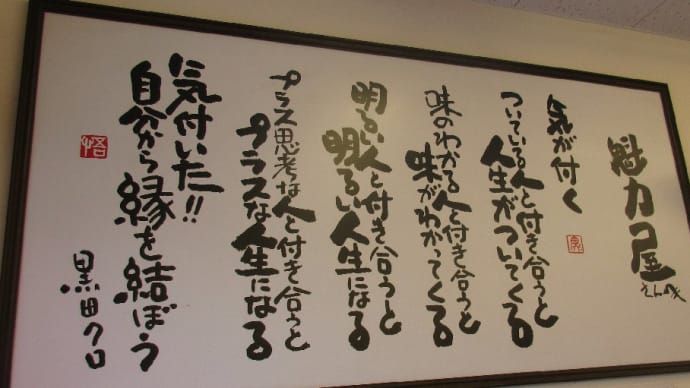 魁力屋
気が付く
ついている人と付き合うと
人生がついてくる
味のわかる人と付き合うと
味がわかってくる
明るい人と付き合うと
明るい人生になる
プラス思考な人と付き合うと
プラスな人生になる
気付いた!!
自分から縁を結ぼう
黒田クロ
悟